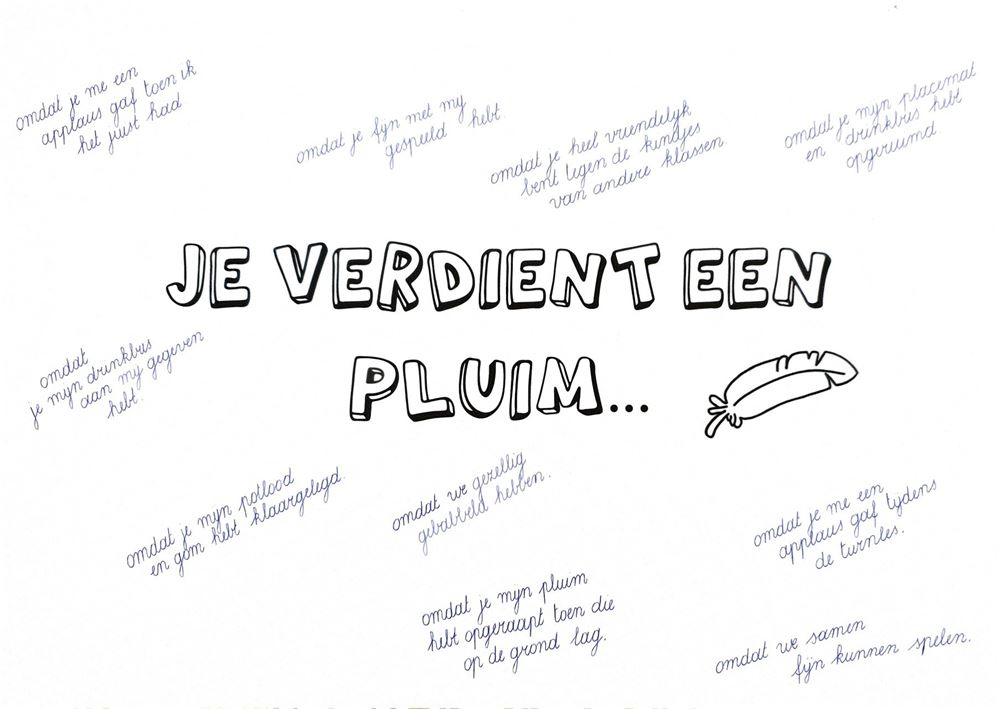 omdat je me een
applaus gaf toen ik
het juist had
omdat je fijn met mij
gespeeld hebt.
omdat je heel vriendelijk
bent tegen de kindjes
van andere klassen.
omdat je mijn placemat
en drinkbus hebt
opgeruimd.
JE VERDIENT EEN
PLUIM...
omdat
je mijn drinkbus
aan mij gegeven
hebt.
omdat je mijn potlood
en gom hebt klaargelegd.
omdat we gezellig
gebabbeld hebben.
omdat je me een
applaus gaf tijdens
de turnles.
omdat je mijn pluim
hebt opgeraapt toen die
op de grond lag.
omdat we samen
fijn kunnen spelen.